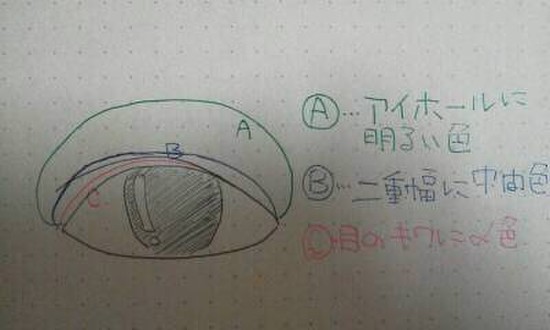 A
Ⓐ…アイホールに
明るい色
B
Ⓑ…二重幅に中間色
C
Ⓒ…目のキワに〆色